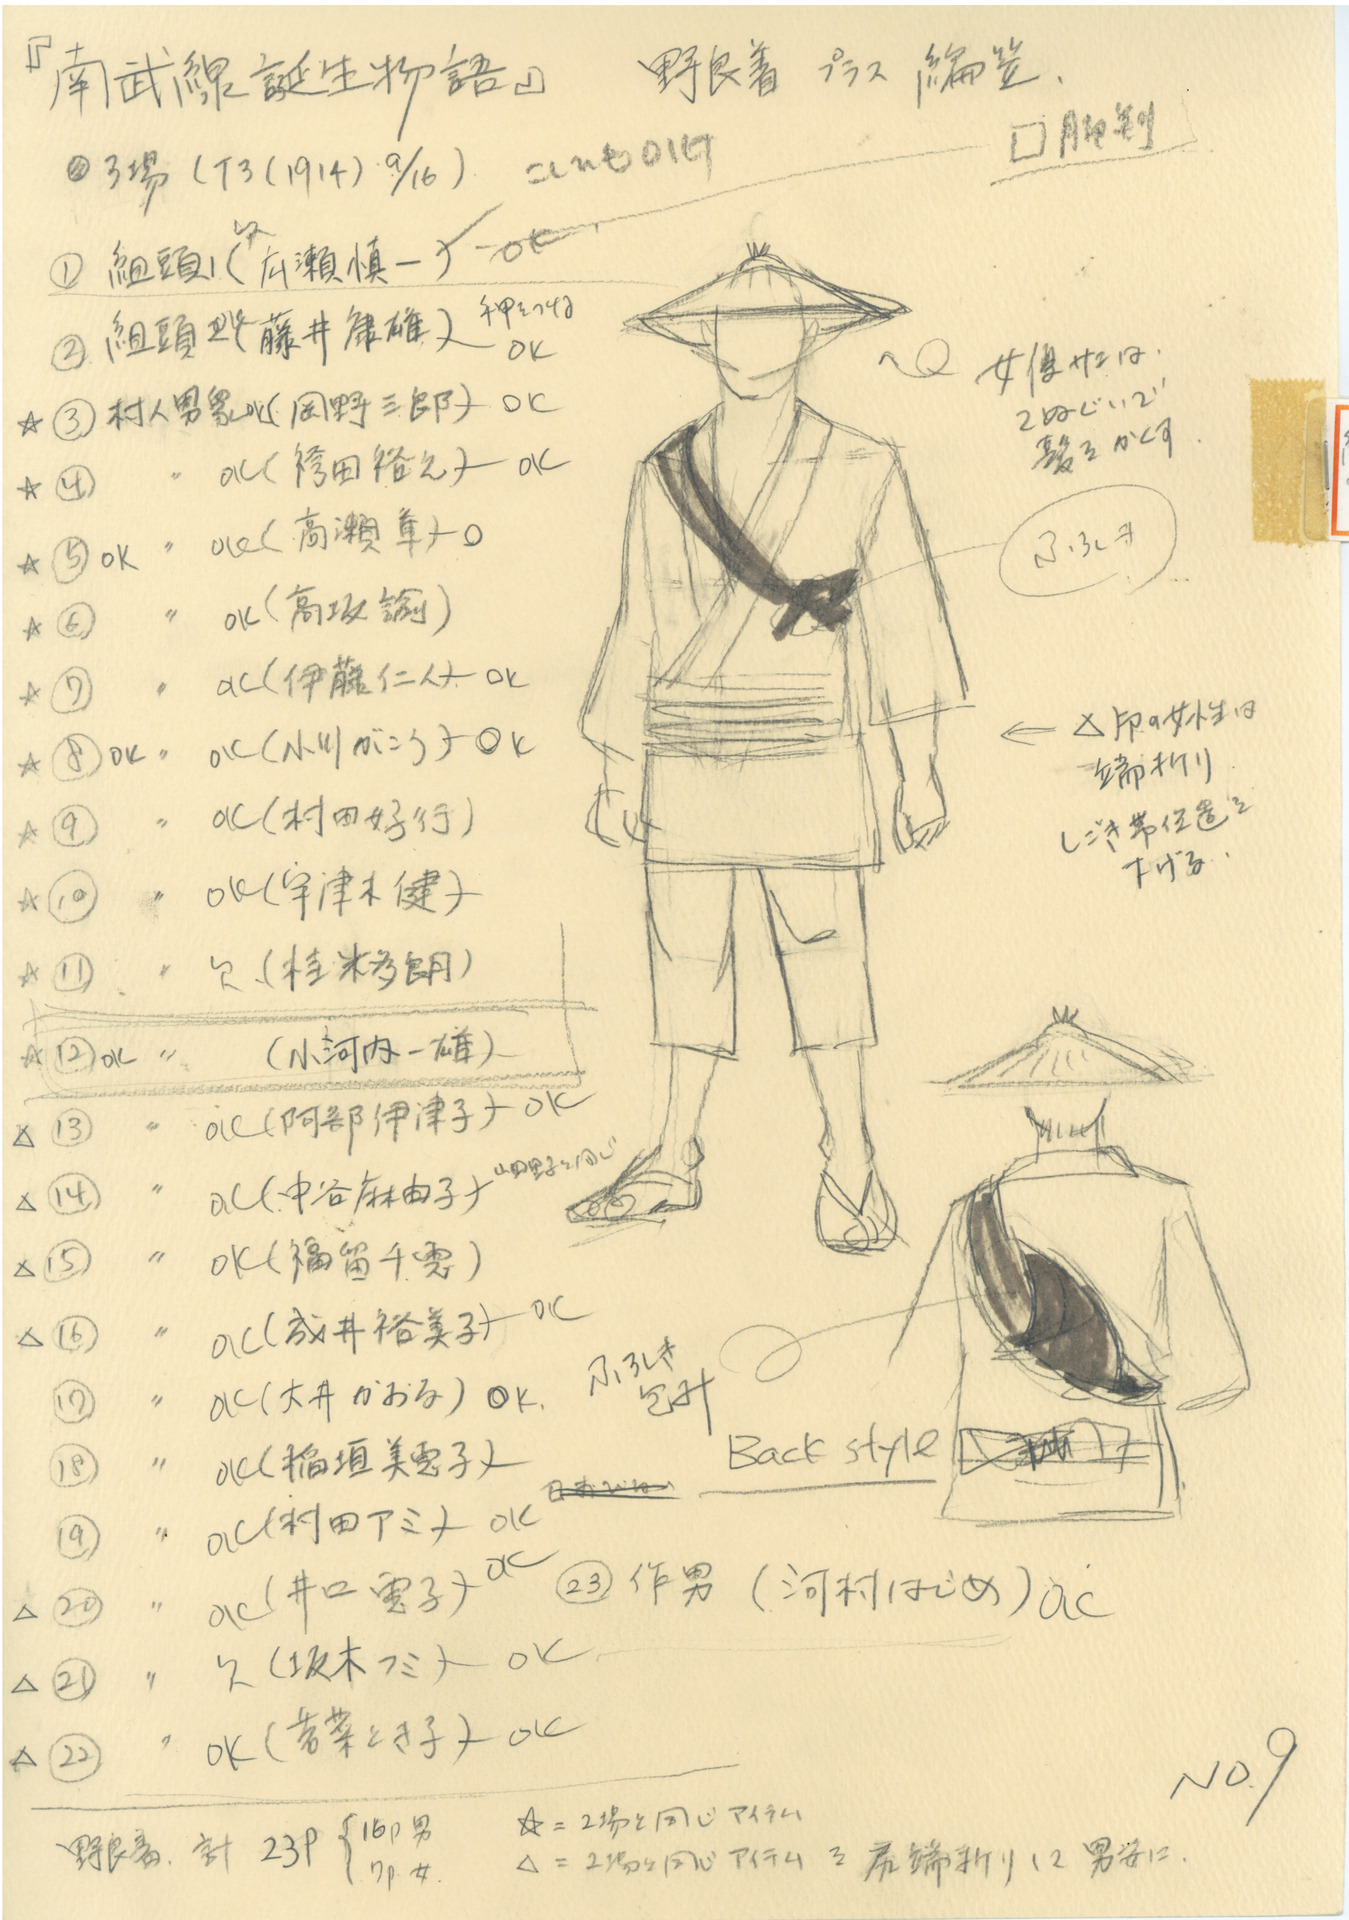 『南武線誕生物語』 野良着 プラス 編笠、
3場 (T3(1914) 9/16)
① 組頭1 欠(広瀬慎一) OK
② 組頭 (藤井康雄) OK
☆③ 村人男衆 OK(岡野三郎) OK
☆④ 〃 OK(袴田裕之) OK
☆⑤ OK 〃 OK(高瀬草) O
☆⑥ 〃 OK(高坂諭)
☆⑦ 〃 OK(伊藤仁人) OK
☆⑧ OK 〃 OK(小川がこう) OK
☆⑨ 〃 OK(村田好行)
☆⑩ 〃 OK(宇津木健)
☆⑪ 〃 欠(桂米多朗)
☆⑫ OK 〃 (小河内一雄)
△⑬ 〃 OK(阿部伊津子) OK
△⑭ 〃 OK(中谷麻由子)
△⑮ 〃 OK(福留千雲)
△⑯ 〃 OK(成井裕美子) OK
⑰ 〃 OK(大井かおる) OK.
⑱ 〃 OK(稲垣美恵子)
⑲ 〃 OK(村田アミ) OK
△⑳ 〃 OK(井口恵子) OK
△㉑ 〃 欠(坂本フミ) OK
△㉒ 〃 OK(若菜とき子) OK
㉓ 作男 (河村はじめ) OK
女優サンは
てぬぐいで
髪をかくす.
ふろしき
← △印の女性は
端折り
しごき帯位置を
下げる.
ふろしき
包み
Back style
NO.9
野良着、計 23P { 16P 男
7P 女
☆=2場と同じアイテム
△=2場と同じアイテムを尻端折りして男姿に.